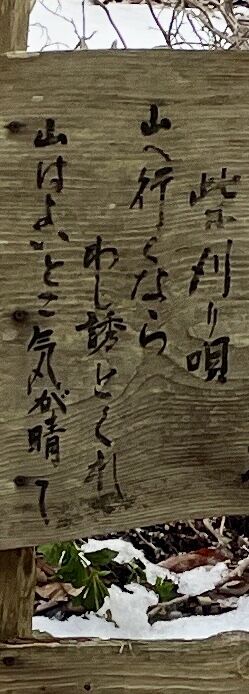 柴刈り唄
山へ行くなら
わし誘とくれ
山はよいとこ気が晴て